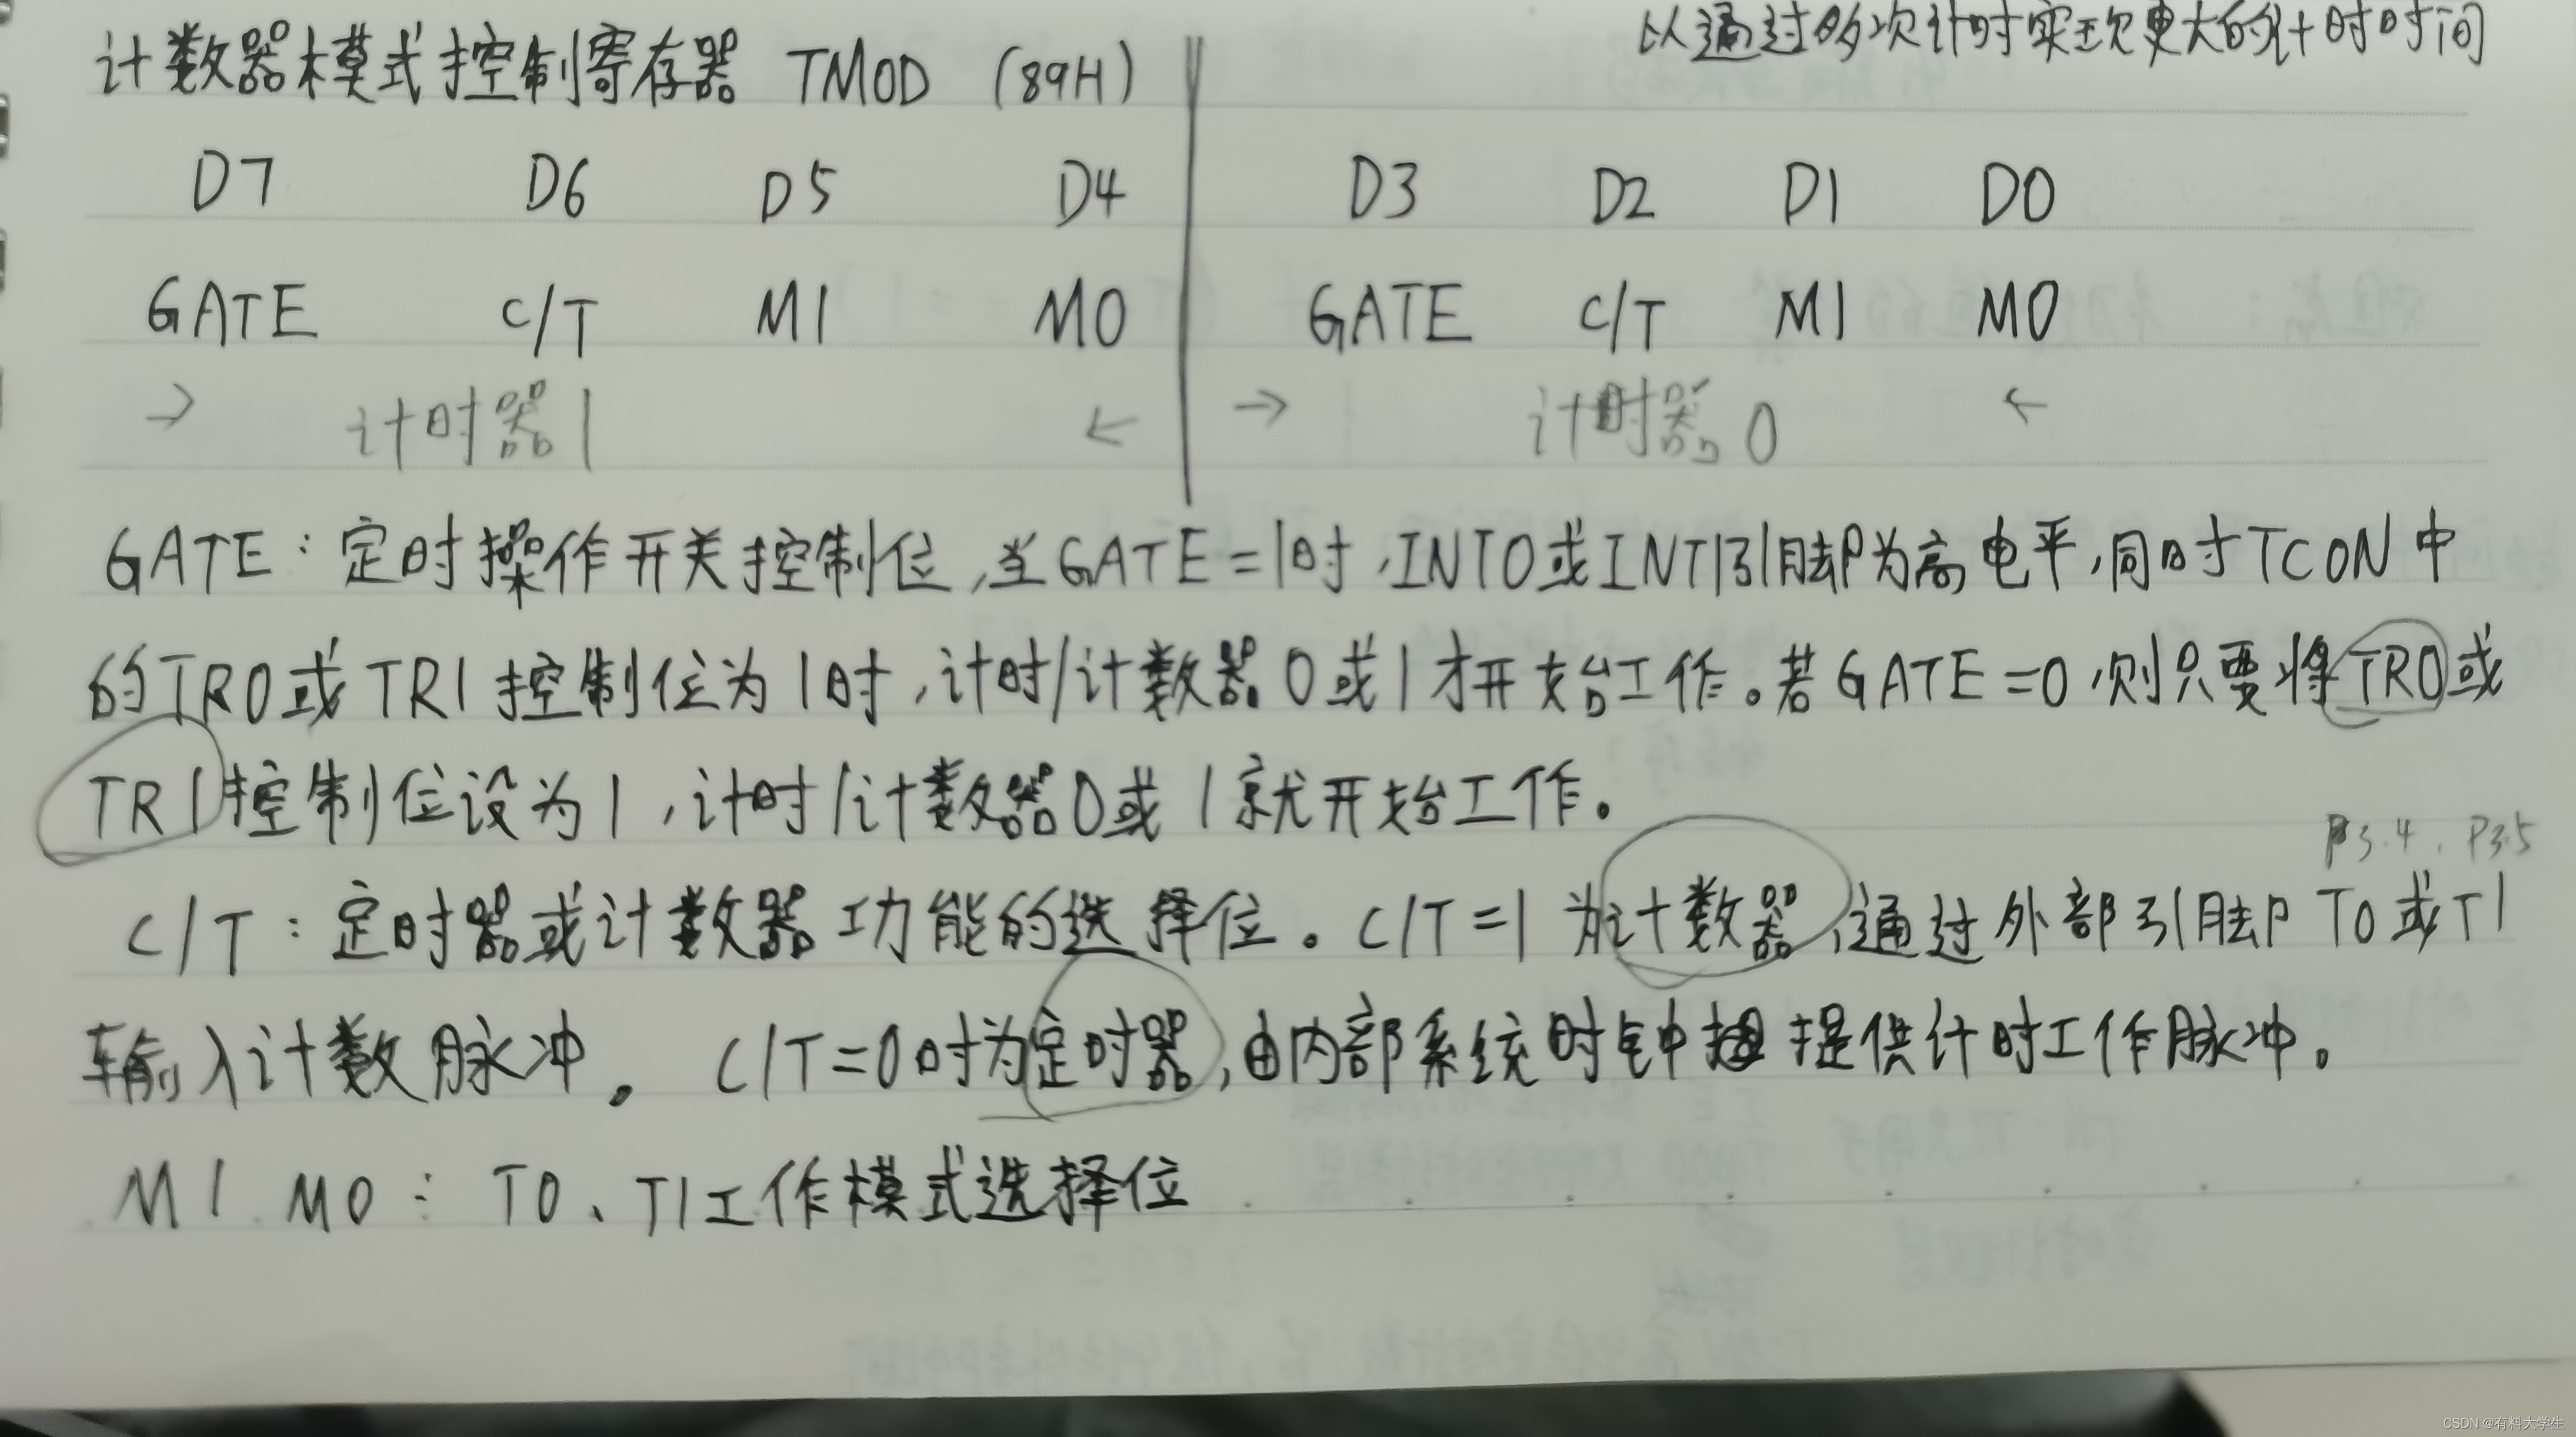 以通过多次计时实现更大的计时时间
计数器模式控制寄存器 TMOD (89H)
D7 D6 D5 D4 D3 D2 D1 D0
GATE C/T M1 M0 GATE C/T M1 M0
→ 计时器1 ← → 计时器0 ←
GATE:定时操作开关控制位,当GATE=1时,INT0或INT1引脚为高电平,同时TCON中
的TR0或TR1控制位为1时,计时/计数器0或1才开始工作。若GATE=0,则只要将TR0或
TR1控制位设为1,计时/计数器0或1就开始工作。
P3.4,P3.5
C/T:定时器或计数器功能的选择位。C/T=1为计数器,通过外部引脚T0或T1
输入计数脉冲。C/T=0时为定时器,由内部系统时钟提供计时工作脉冲。
M1 M0:T0、T1工作模式选择位
CSDN @有料大学生